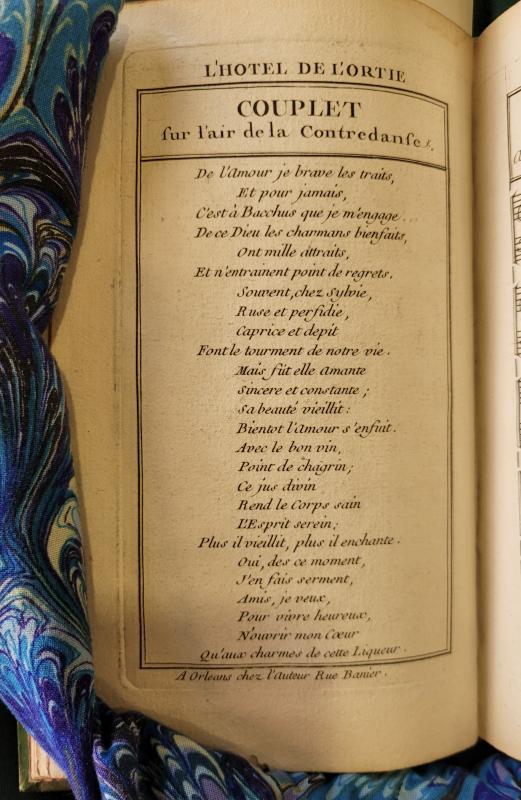 L'HOTEL DE L'ORTIE
COUPLET
sur l'air de la Contredanse.
De l'Amour je brave les traits,
Et pour jamais,
C'est à Bacchus que je m'engage.
De ce Dieu les charmans bienfaits,
Ont mille attraits,
Et n'entrainent point de regrets.
Souvent, chez Sylvie,
Ruse et perfidie,
Caprice et depit
Font le tourment de notre vie.
Mais fût elle Amante
Sincere et constante;
Sa beauté vieillit:
Bientot l'Amour s'enfuit.
Avec le bon vin,
Point de chagrin;
Ce jus divin
Rend le Corps sain
L'Esprit serein;
Plus il vieillit, plus il enchante.
Oui, des ce moment,
J'en fais serment,
Amis, je veux,
Pour vivre heureux,
N'ouvrir mon Cœur
Qu'aux charmes de cette Liqueur.
A Orleans chez l'auteur Rue Banier.